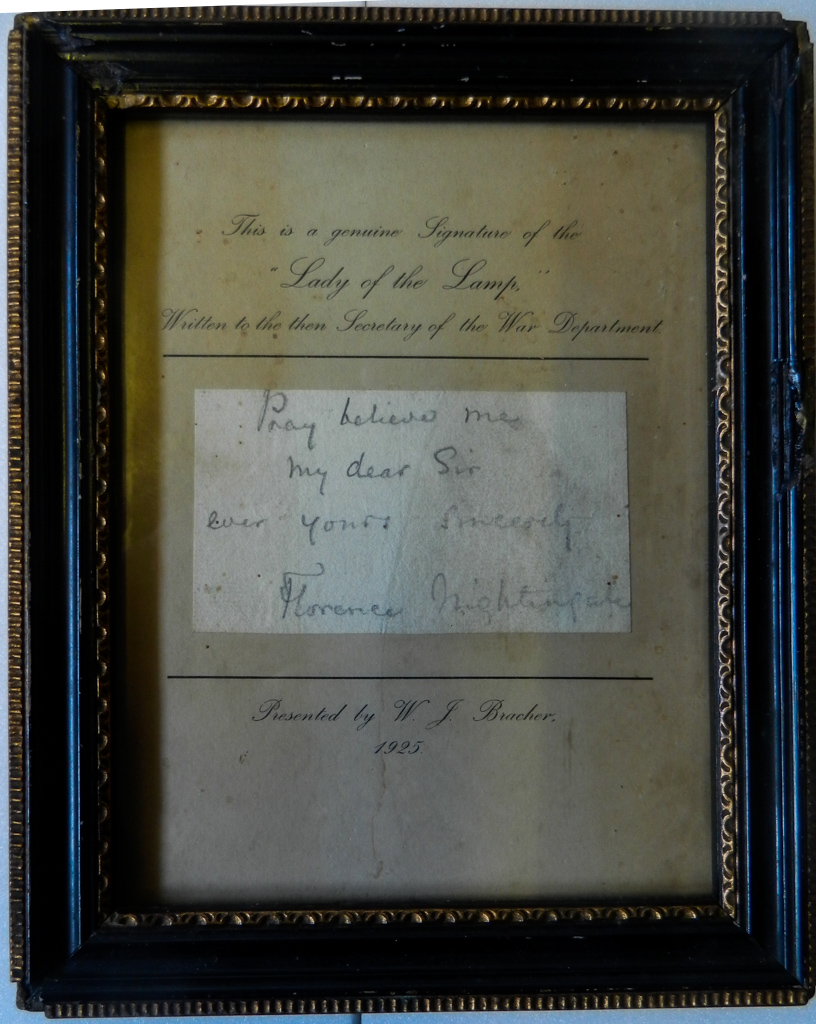 This is a genuine Signature of the
"Lady of the Lamp,"
Written to the then Secretary of the War Department
Pray believe me
my dear Sir
ever yours sincerely
Florence Nightingale
Presented by W. J. Bracher,
1925.